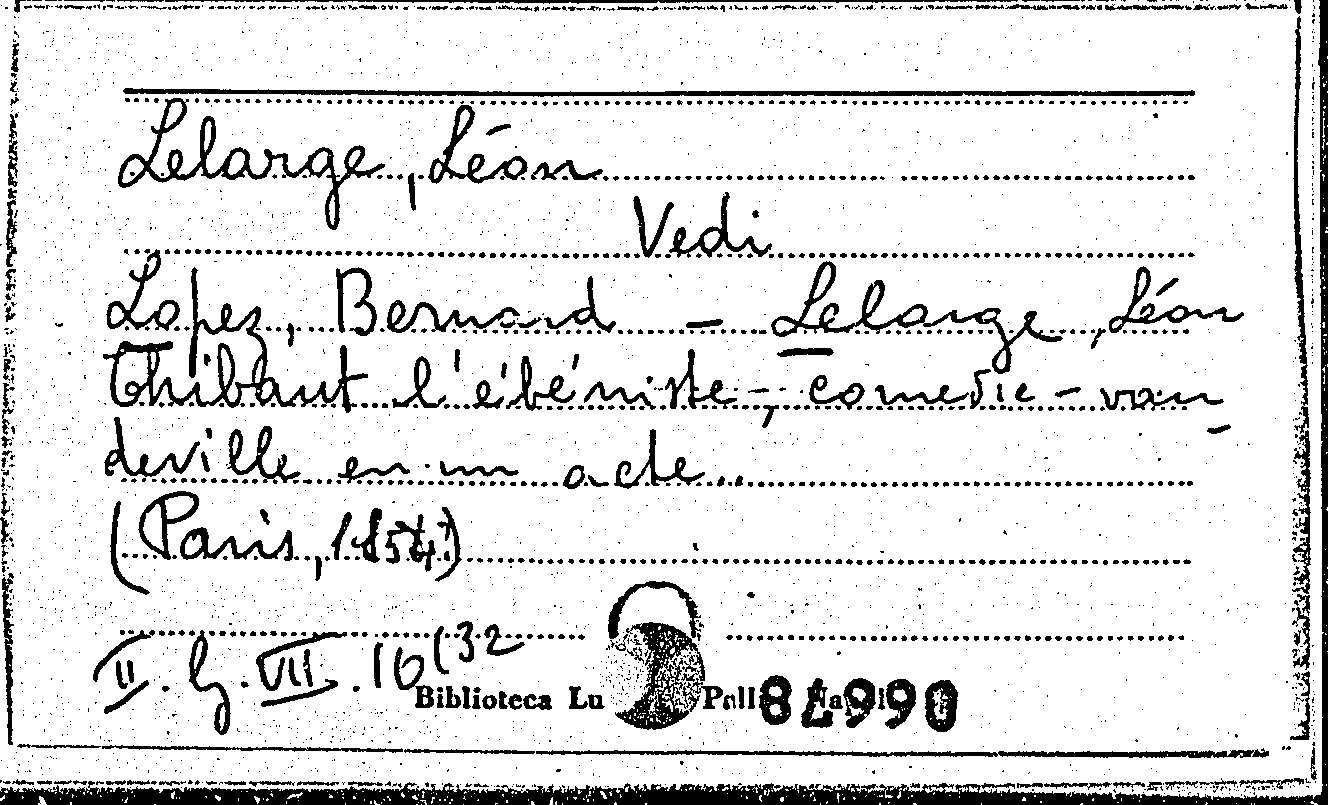 Lelarge, Léon
Vedi
Lopez, Bernard - Lelarge, Léon
Thibaut l'ébéniste, comedie-vau-
deville en un acte..
(Paris, 185
II. G. VII. 16(32
Biblioteca Lu